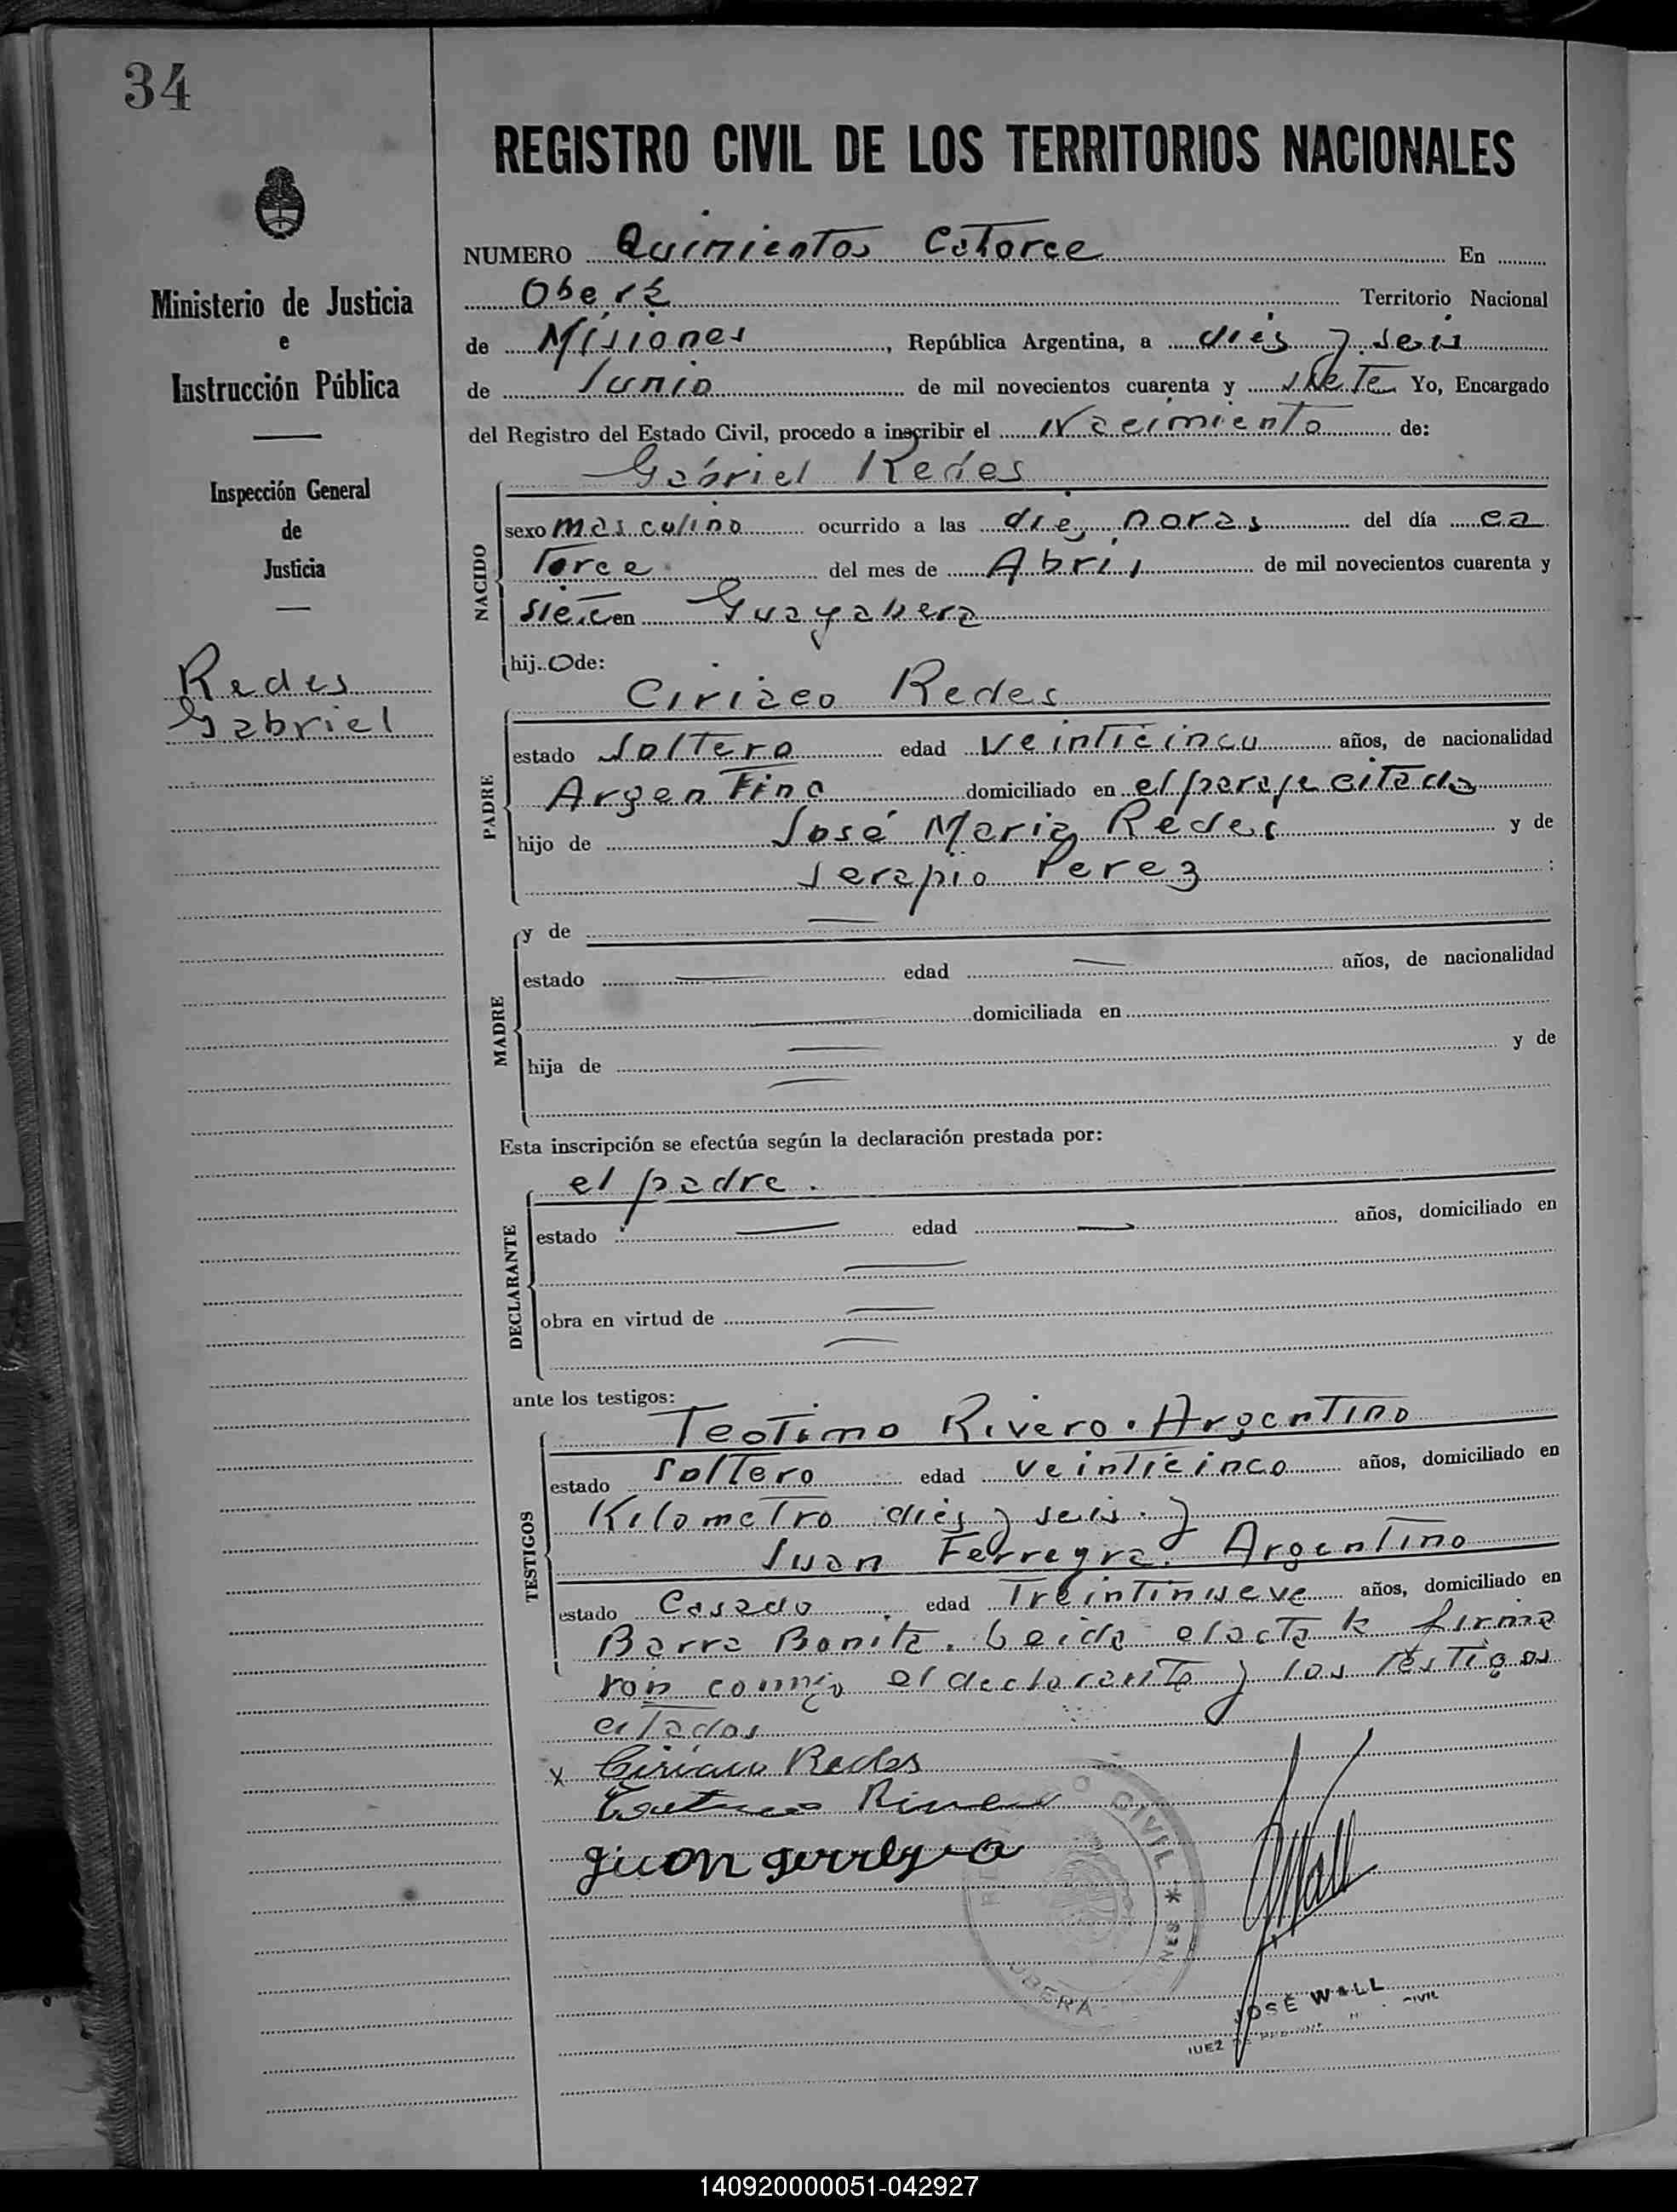 34
REGISTRO CIVIL DE LOS TERRITORIOS NACIONALES
Ministerio de Justicia
e
Instrucción Pública
Inspección General
de
Justicia
Redes
Gabriel
NUMERO Quinientos Catorce En
Oberá Territorio Nacional
de Misiones, República Argentina, a dies y seis
de Junio de mil novecientos cuarenta y siete Yo, Encargado
del Registro del Estado Civil, procedo a inscribir el Nacimiento de:
Gabriel Redes
NACIDO
sexo masculino ocurrido a las diez horas del día ca
torce del mes de Abril de mil novecientos cuarenta y
siete en Guayabera
hij o de:
Ciriaco Redes
PADRE
estado Soltero edad veinticinco años, de nacionalidad
Argentina domiciliado en el paraje citado
hijo de José Maria Redes y de
Serapio Perez :
MADRE
y de
estado edad años, de nacionalidad
domiciliada en
hija de y de
Esta inscripción se efectúa según la declaración prestada por:
el padre.
DECLARANTE
estado edad años, domiciliado en
obra en virtud de
ante los testigos:
TESTIGOS
Teotimo Rivero. Argentino
estado Soltero edad veinticinco años, domiciliado en
Kilometro dies y seis. y
Juan Ferreyra. Argentino
estado Casado edad Treintinueve años, domiciliado en
Barra Bonita. Leida el acta la firma
ron conmigo el declarante y los testigos
citados
x Ciriaco Redes
Teotimo Rivero
juan ferreyra
CIVIL *
OBERA
JOSÉ WALL
JUEZ DE CIVIL
140920000051-042927